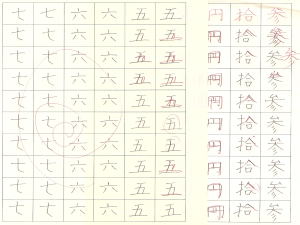 七 七 六 六 五 五 円 拾 参
七 七 六 六 五 五 円 拾 参
七 七 六 六 五 五 円 拾 参 参
七 七 六 六 五 五 円 拾 参
七 七 六 六 五 五 円 拾 参
七 七 六 六 五 五 円 拾 参
七 七 六 六 五 五 円 拾 参
七 七 六 六 五 五 円 拾 参
七 七 六 六 五 五 円 拾 参
七 七 六 六 五 五 円 拾 参